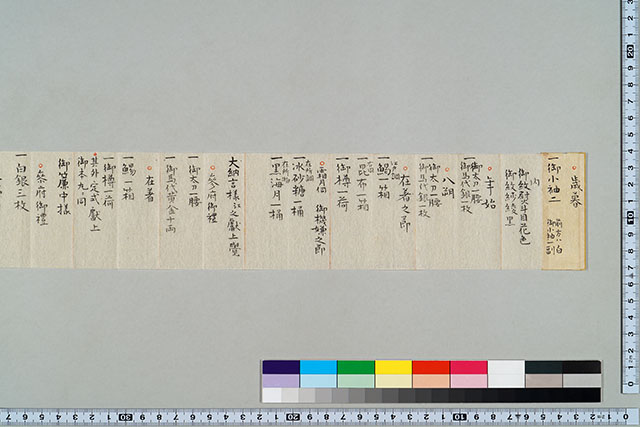 歳暮
一御小袖二
内
御紋熨斗目花色
御紋紗綾黒
年始
一御太刀一腰
御馬代銀一枚
八朔
一御太刀一腰
御馬代銀一枚
在着之節
一鯣一箱
一昆布一箱
一御樽一荷
御機嫌之節
一氷砂糖一桶
一黒海月一桶
大納言様江之献上覚
参府御禮
一御太刀一腰
一御馬代黄金十両
在着
一鯣一箱
一御樽一荷
其外定式献上
御本丸同
御簾中様
参府御禮
一白銀三枚